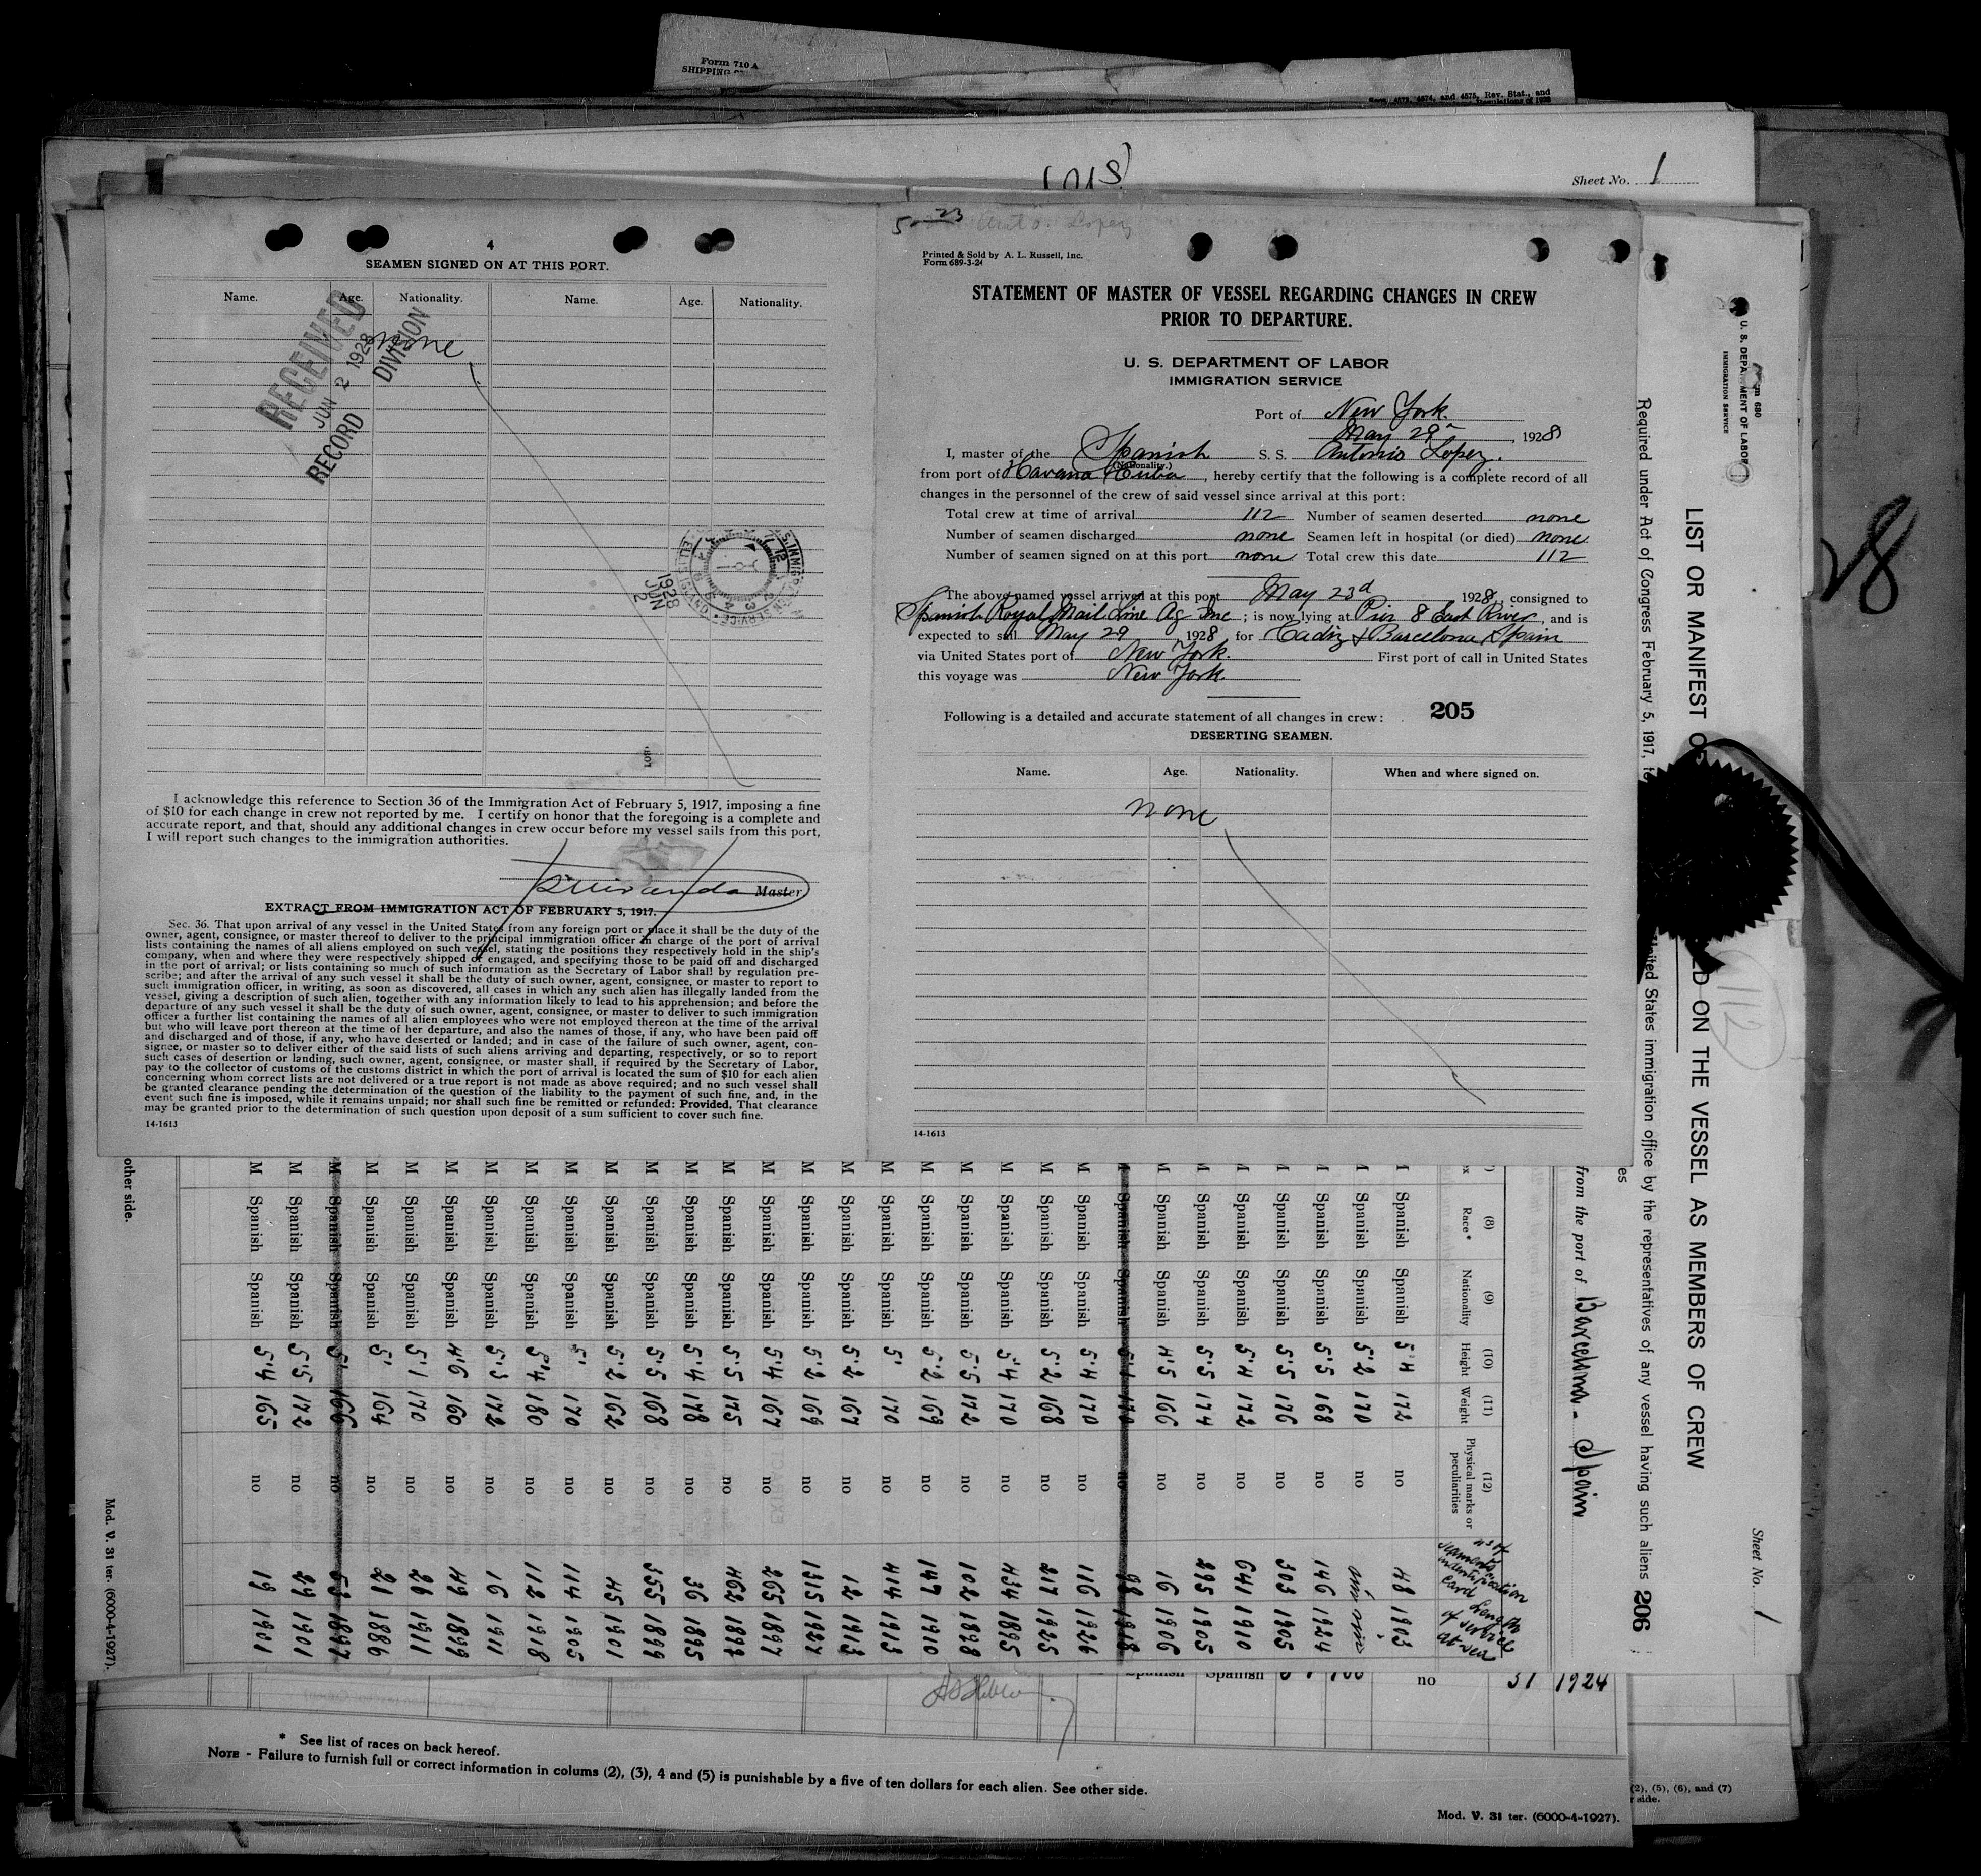 Form 710 A
SHIPPING
4573, 4574, and 4575, Rev. Stat., and
Regulations of 1928
Sheet No. 1
4
SEAMEN SIGNED ON AT THIS PORT.
Name. Age. Nationality. Name. Age. Nationality.
none
RECEIVED
JUN 2 1928
RECORD DIVISION
1928
JUN
2
I acknowledge this reference to Section 36 of the Immigration Act of February 5, 1917, imposing a fine
of $10 for each change in crew not reported by me. I certify on honor that the foregoing is a complete and
accurate report, and that, should any additional changes in crew occur before my vessel sails from this port,
I will report such changes to the immigration authorities.
Master
EXTRACT FROM IMMIGRATION ACT OF FEBRUARY 5, 1917.
Sec. 36. That upon arrival of any vessel in the United States from any foreign port or place it shall be the duty of the
owner, agent, consignee, or master thereof to deliver to the principal immigration officer in charge of the port of arrival
lists containing the names of all aliens employed on such vessel, stating the positions they respectively hold in the ship's
company, when and where they were respectively shipped or engaged, and specifying those to be paid off and discharged
in the port of arrival; or lists containing so much of such information as the Secretary of Labor shall by regulation pre-
scribe; and after the arrival of any such vessel it shall be the duty of such owner, agent, consignee, or master to report to
such immigration officer, in writing, as soon as discovered, all cases in which any such alien has illegally landed from the
vessel, giving a description of such alien, together with any information likely to lead to his apprehension; and before the
departure of any such vessel it shall be the duty of such owner, agent, consignee, or master to deliver to such immigration
officer a further list containing the names of all alien employees who were not employed thereon at the time of the arrival
but who will leave port thereon at the time of her departure, and also the names of those, if any, who have been paid off
and discharged and of those, if any, who have deserted or landed; and in case of the failure of such owner, agent, con-
signee, or master so to deliver either of the said lists of such aliens arriving and departing, respectively, or so to report
such cases of desertion or landing, such owner, agent, consignee, or master shall, if required by the Secretary of Labor,
pay to the collector of customs of the customs district in which the port of arrival is located the sum of $10 for each alien
concerning whom correct lists are not delivered or a true report is not made as above required; and no such vessel shall
be granted clearance pending the determination of the question of the liability to the payment of such fine, and, in the
event such fine is imposed, while it remains unpaid; nor shall such fine be remitted or refunded: Provided, That clearance
may be granted prior to the determination of such question upon deposit of a sum sufficient to cover such fine.
14-1613
5 23 Anto. Lopez
Printed & Sold by A. L. Russell, Inc.
Form 689-3-24
STATEMENT OF MASTER OF VESSEL REGARDING CHANGES IN CREW
PRIOR TO DEPARTURE.
U. S. DEPARTMENT OF LABOR
IMMIGRATION SERVICE
Port of New York.
May 29, 1928
I, master of the Spanish S. S. Antonio Lopez.
(Nationality.)
from port of Havana Cuba, hereby certify that the following is a complete record of all
changes in the personnel of the crew of said vessel since arrival at this port:
Total crew at time of arrival 112 Number of seamen deserted none
Number of seamen discharged none Seamen left in hospital (or died) none
Number of seamen signed on at this port none Total crew this date 112
The above named vessel arrived at this port May 23d 1928, consigned to
Spanish Royal Mail Line Ag Inc; is now lying at Pier 8 East River, and is
expected to sail May 29, 1928 for Cadiz & Barcelona, Spain
via United States port of New York. First port of call in United States
this voyage was New York.
Following is a detailed and accurate statement of all changes in crew: 205
DESERTING SEAMEN.
Name. Age. Nationality. When and where signed on.
none
14-1613
28
Form 680
U. S. DEPARTMENT OF LABOR
IMMIGRATION SERVICE
Sheet No. 1
112
LIST OR MANIFEST OF
ED ON THE VESSEL AS MEMBERS OF CREW
Required under Act of Congress February 5, 1917,
United States immigration office by the representatives of any vessel having such aliens 206
from the port of Barcelona - Spain
(8) Race* (9) Nationality (10) Height (11) Weight (12) Physical marks or peculiarities nº of seamen's indentification card Length of service at sea
Spanish Spanish 5'4 172 no 48 1903
Spanish Spanish 5'2 170 no
Spanish Spanish 5'5 168 no 146 1924
Spanish Spanish 5'5 176 no 303 1905
Spanish Spanish 5'4 172 no 641 1910
Spanish Spanish 5'5 174 no 295 1905
M Spanish Spanish 4'5 166 no 16 1906
Spanish Spanish 170 no 98 1918
M Spanish Spanish 5'4 170 no 116 1926
M Spanish Spanish 5'2 168 no 217 1925
M Spanish Spanish 5'4 170 no 434 1895
M Spanish Spanish 5'5 172 no 102 1898
M Spanish Spanish 5'2 169 no 147 1910
M Spanish Spanish 5' 170 no 414 1913
M Spanish Spanish 5'2 167 no 12 1913
M Spanish Spanish 5'2 169 no 1315 1927
M Spanish Spanish 5'4 167 no 265 1897
M Spanish Spanish 5'5 175 no 462 1899
M Spanish Spanish 5'4 178 no 36 1895
M Spanish Spanish 5'5 168 no 355 1899
M Spanish Spanish 5'2 162 no 45 1901
M Spanish Spanish 5' 170 no 114 1905
M Spanish Spanish 5'4 180 no 112 1918
M Spanish Spanish 5'3 172 no 16 1911
M Spanish Spanish 4'6 160 no 49 1899
M Spanish Spanish 5'1 170 no 26 1911
M Spanish Spanish 5' 164 no 21 1886
M Spanish Spanish 5' 166 no 53 1897
M Spanish Spanish 5'5 172 no 29 1901
M Spanish Spanish 5'4 165 no 19 1911
other side.
Mod. V. 31 ter. (6000-4-1927).
Spanish Spanish no 31 1924
* See list of races on back hereof.
NOTE - Failure to furnish full or correct information in colums (2), (3), 4 and (5) is punishable by a five of ten dollars for each alien. See other side.
Mod. V. 31 ter. (6000-4-1927).
(2), (5), (6), and (7)
side.